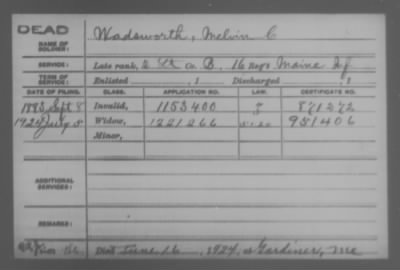 DEAD
NAME OF SOLDIER: Wadsworth, Melvin C
SERVICE: Late rank, 2 Lt Co. B, 16 Reg't Maine Inf
TERM OF SERVICE: Enlisted , 1 Discharged , 1
DATE OF FILING. CLASS. APPLICATION NO. LAW. CERTIFICATE NO.
1893 Sept 8 Invalid, 1153400 871272
1924 July 5 Widow, 1221266 951406
Minor,
ADDITIONAL SERVICES:
REMARKS:
Died June 16, 1924, at Gardiner, Me